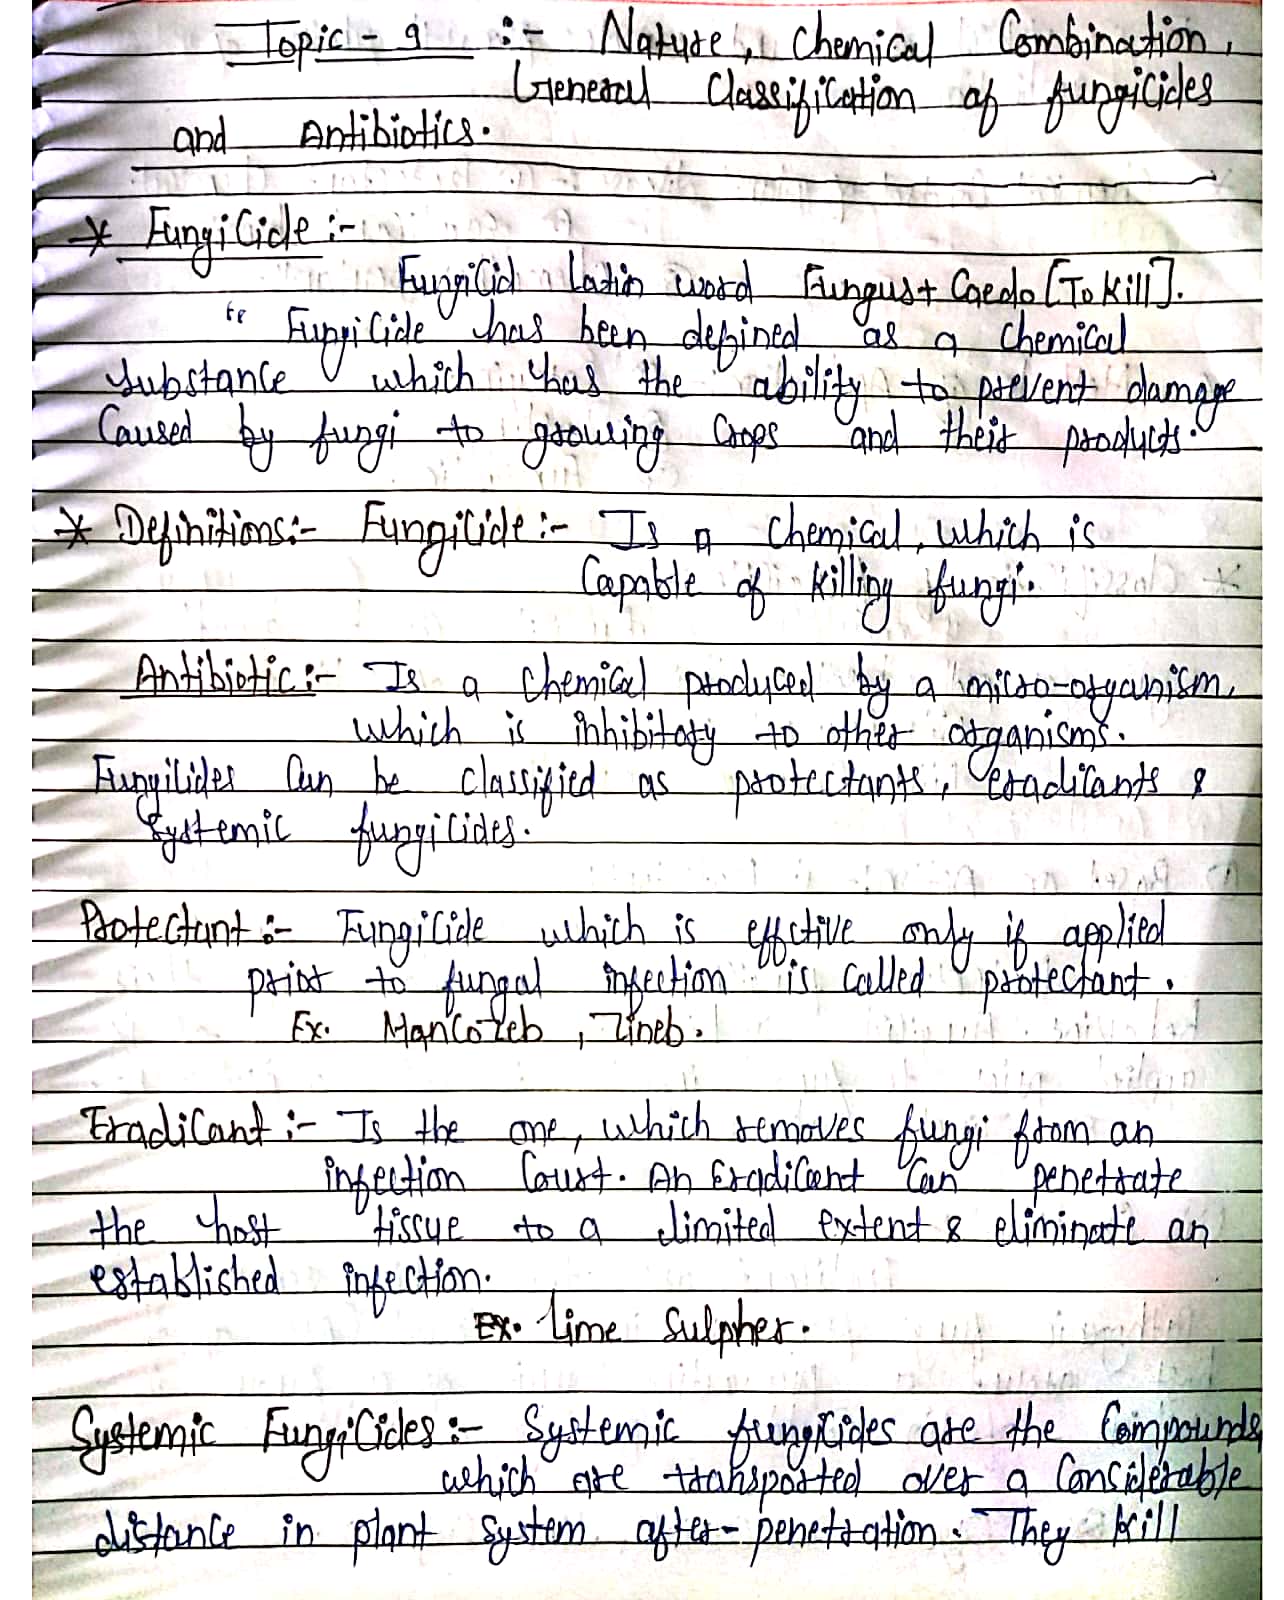 Topic - 9 :- Nature, Chemical Combination,
General Classification of fungicides
and Antibiotics.
* Fungicide :-
Fungicid Latin word Fungus + Caedo [To Kill].
" Fungicide has been defined as a chemical
substance which has the ability to prevent damage
Caused by fungi to growing Crops and their products.
* Definitions:- Fungicide:- Is a chemical, which is
Capable of killing fungi.
Antibiotic:- Is a chemical produced by a micro-organism,
which is inhibitory to other organisms.
Fungicides Can be classified as protectants, eradicants &
Systemic fungicides.
Protectant :- Fungicide which is effctive only if applied
prior to fungal infection is called protectant.
Ex. Mancozeb, Zineb.
Eradicant :- Is the one, which removes fungi from an
infection Court. An Eradicant Can penetrate
the host tissue to a limited extent & eliminate an
established infection.
Ex. Lime Sulpher.
Systemic Fungicides:- Systemic fungicides are the Compounds
which are transported over a Considerable
distance in plant system after-penetration. They kill